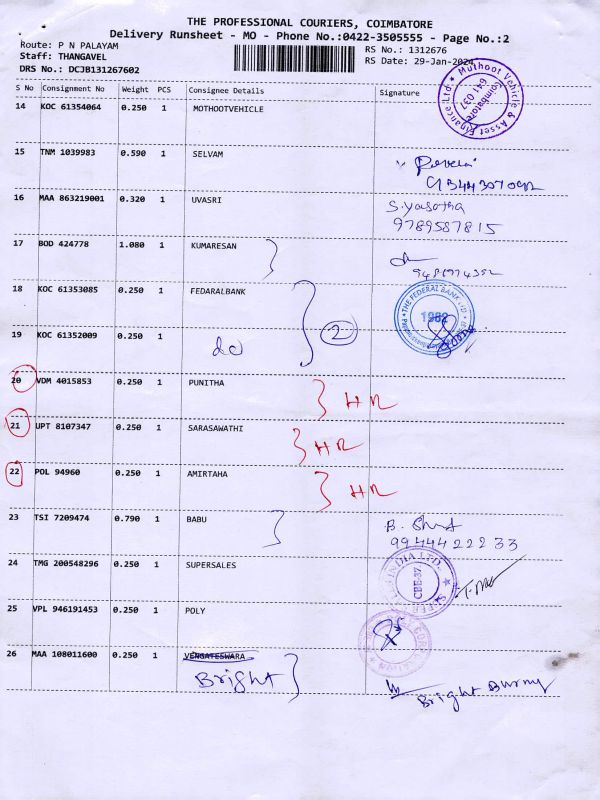 THE PROFESSIONAL COURIERS, COIMBATORE
Delivery Runsheet - MO - Phone No.:0422-3505555 - Page No.:2
Route: P N PALAYAM
RS No.: 1312676
Staff: THANGAVEL
RS Date: 29-Jan-2024
DRS No.: DCJB131267602
S No Consignment No Weight PCS Consignee Details Signature
14 KOC 61354064 0.250 1 MOTHOOTVEHICLE
Muthoot Vehicle & Asset Finance Ltd. Coimbatore 641 037
15 TNM 1039983 0.590 1 SELVAM
16 MAA 863219001 0.320 1 UVASRI S.Yasotha
9789587815
17 BOD 424778 1.080 1 KUMARESAN
18 KOC 61353085 0.250 1 FEDARALBANK
THE FEDERAL BANK LTD 1982
19 KOC 61352009 0.250 1 do 2
20 VDM 4015853 0.250 1 PUNITHA HR
21 UPT 8107347 0.250 1 SARASAWATHI HR
22 POL 94960 0.250 1 AMIRTAHA HR
23 TSI 7209474 0.790 1 BABU B.
9944422233
24 TMG 200548296 0.250 1 SUPERSALES
INDIA LTD. CBE-37
25 VPL 946191453 0.250 1 POLY
26 MAA 108011600 0.250 1 VENGATESWARA
Bright Bright